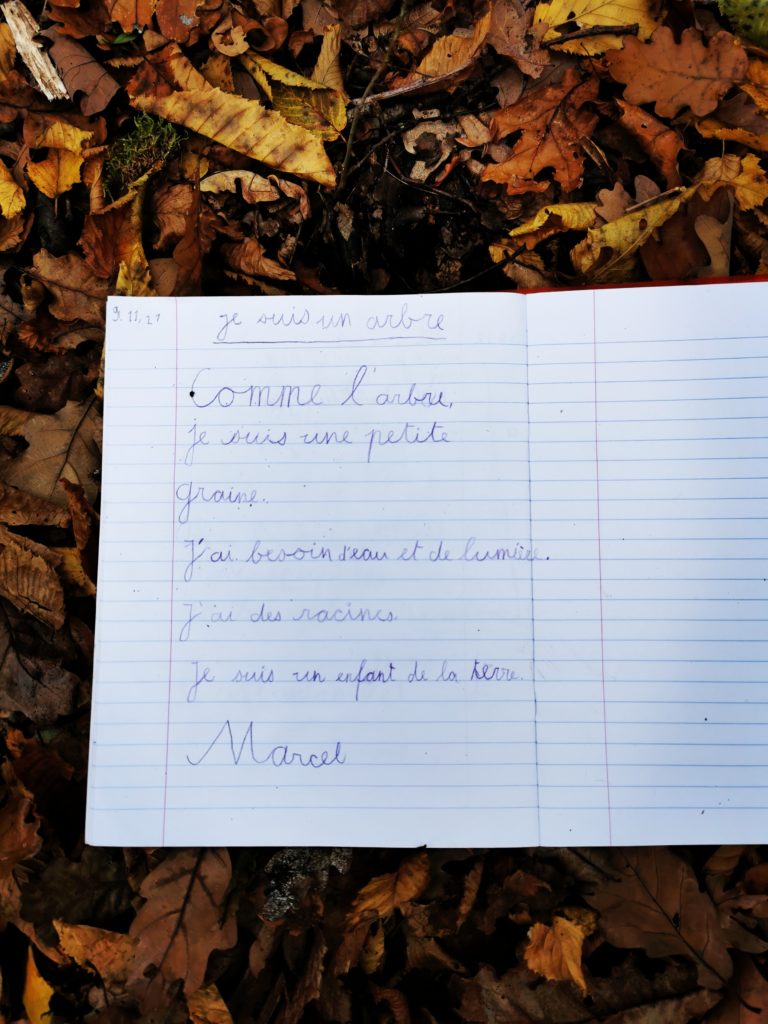 9.11.21
je suis un arbre
Comme l'arbre,
je suis une petite
graine.
J'ai besoin d'eau et de lumière.
J'ai des racines
Je suis un enfant de la terre.
Marcel